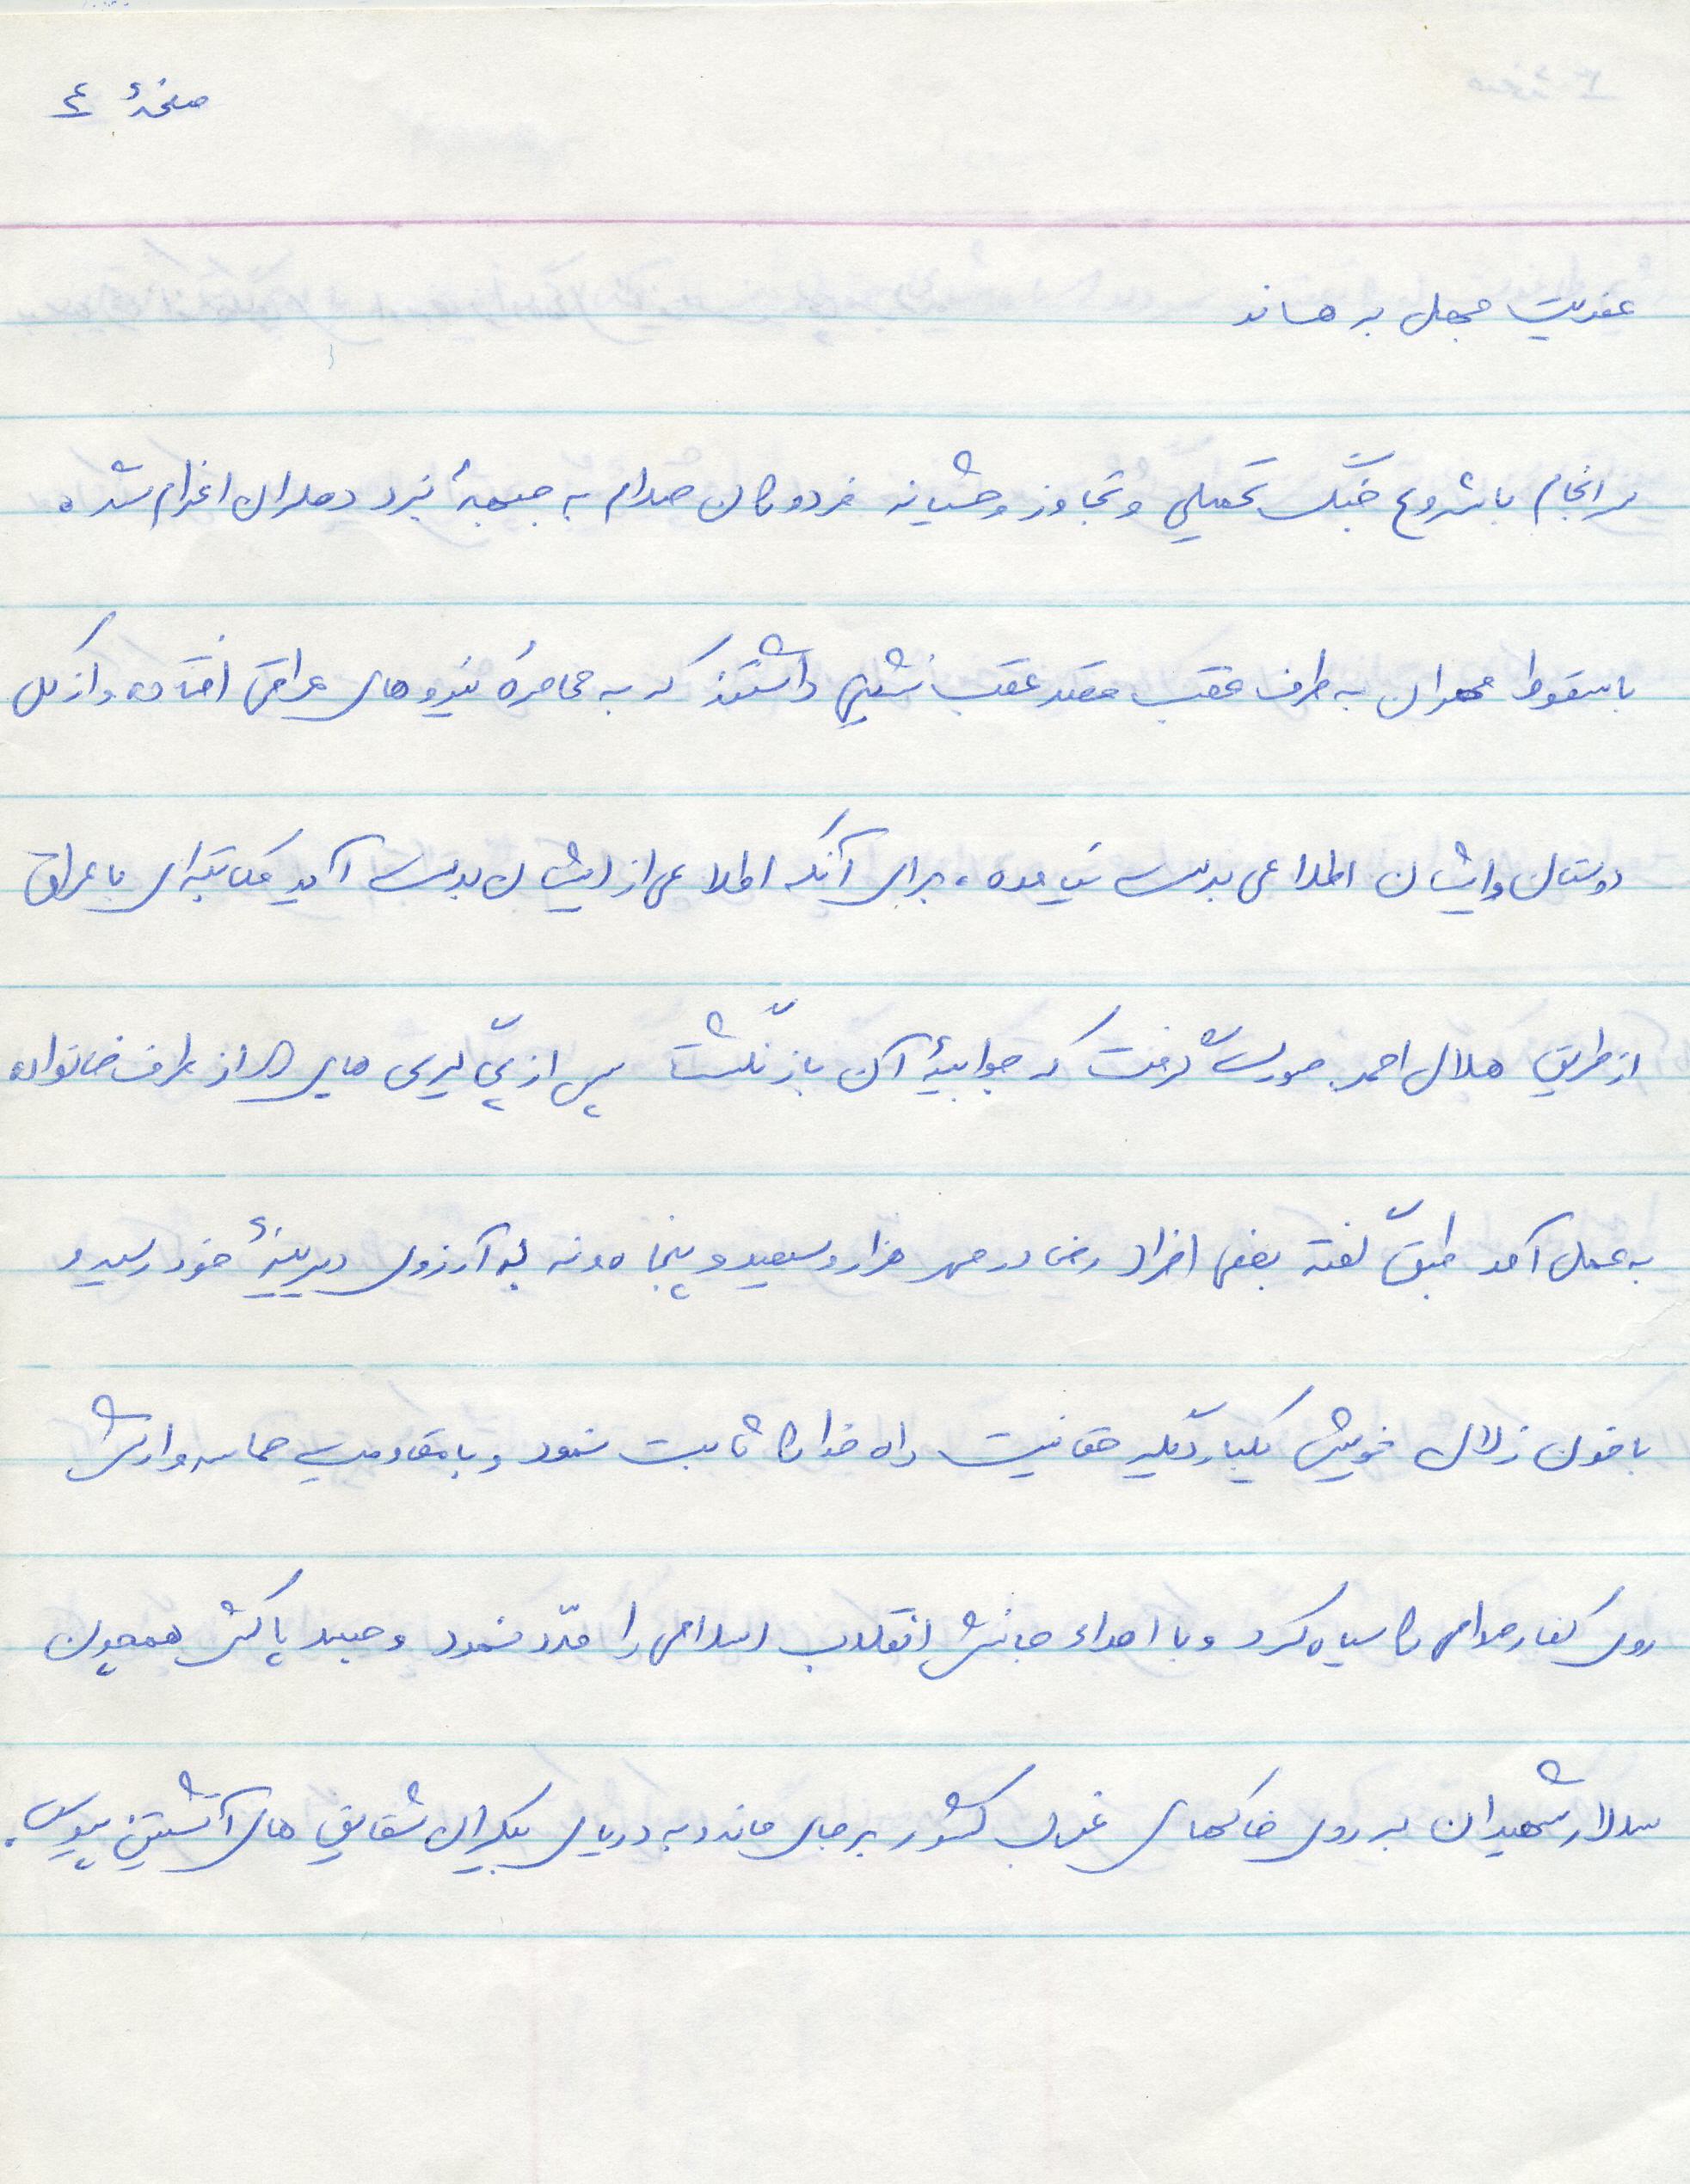 صفحهٔ ٤
عفریت جهل برهاند
سرانجام با شروع جنگ تحمیلی و تجاوز وحشیانه مزدوران صدام به جبههٔ نبرد دهلران اعزام شده
با سقوط مهران به طرف عقب قصد عقب نشینی داشتند که به محاصرهٔ نیروهای عراقی افتاده و از کل
دوستان و ایشان اطلاعی بدست نیامده ، برای آنکه اطلاعی از ایشان بدست آید مکاتبه‌ای با عراق
از طریق هلال احمر صورت گرفت که جوابیهٔ آن بازنگشت پس از پی‌گیری هایی که از طرف خانواده
به عمل آمد طبق گفته بعضی افراد رضا در مهر هزار و سیصد و پنجاه و نه به آرزوی دیرینهٔ خود رسید و
با خون زلال خویش یکبار دیگر حقانیت راه خدا را ثابت نمود و با مقاومت حماسه وارش
روی کفار صدامی را سیاه کرد و با اهداء جانش انقلاب اسلامی را مدد نمود و جسد پاکش همچون
سالار شهیدان بر روی خاکهای غرب کشور بر جای ماند و به دریای بیکران شقایق های آتشین پیوست.